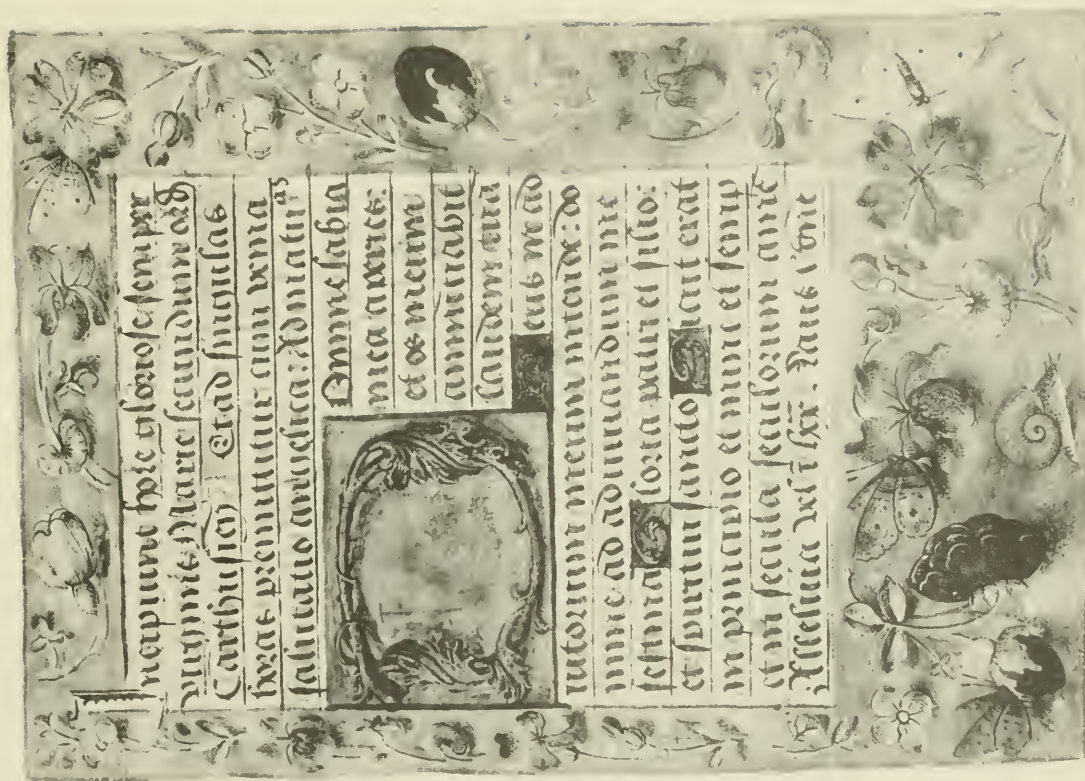 Incipiunt hore gloriose semper
virginis Marie secundum ord
Carthusien Et ad singulas
horas premittitur cum venia
salutatio angelica: Ad matutias
Domine labia
mea aperies:
et os meum
annunciabit
laudem tua
Deus in ad
iutorium meum intende: do
mine ad adiuuandum me
festina Gloria patri et filio:
et spiritui sancto Sicut erat
in principio et nunc et semp
et in secula seculorum ame
Alleluia vel i lxx. Laus t' dne